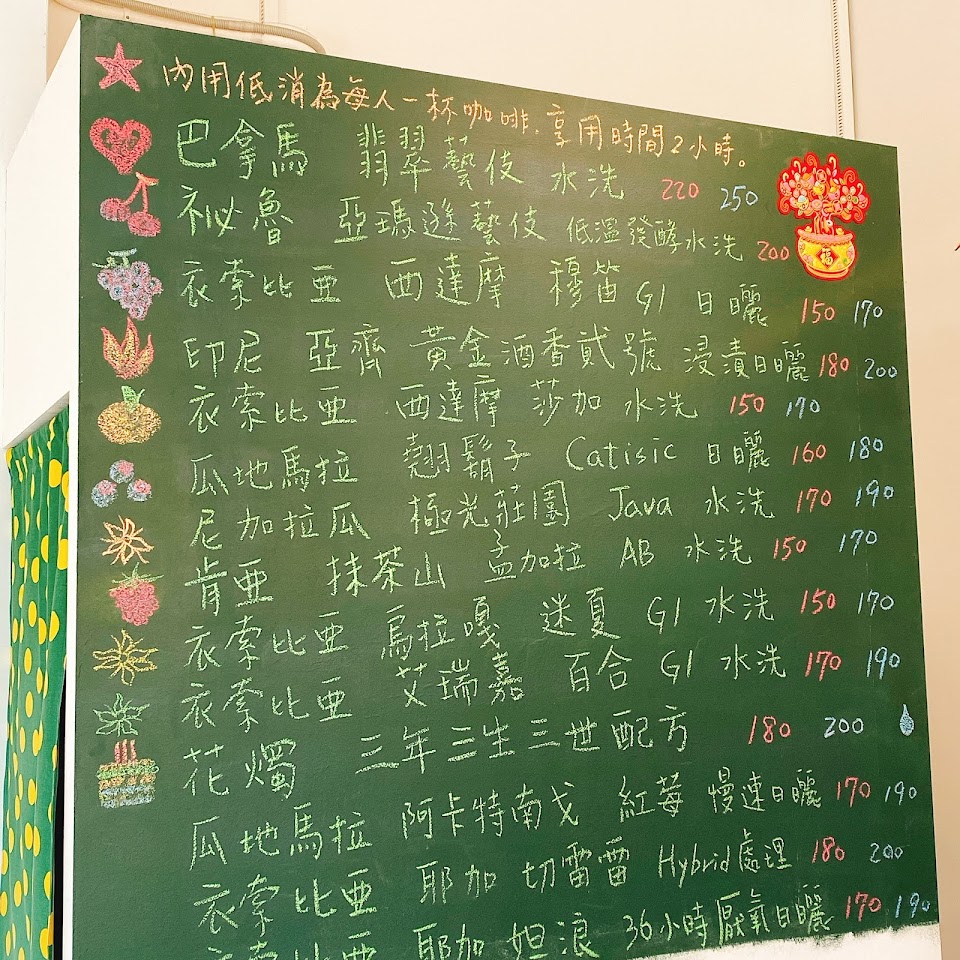 內用低消為每人一杯咖啡，享用時間2小時。
巴拿馬 翡翠藝伎 水洗 220 250
祕魯 亞瑪遜藝伎 低溫發酵水洗 200
福
衣索比亞 西達摩 穆笛 G1 日曬 150 170
印尼 亞齊 黃金酒香貳號 浸漬日曬 180 200
衣索比亞 西達摩 莎加 水洗 150 170
瓜地馬拉 翹鬍子 Catisic 日曬 160 180
尼加拉瓜 極光莊園 Java 水洗 170 190
肯亞 抹茶山 孟加拉 AB 水洗 150 170
衣索比亞 烏拉嘎 迷夏 G1 水洗 150 170
衣索比亞 艾瑞嘉 百合 G1 水洗 170 190
花燭 三年三生三世配方 180 200
瓜地馬拉 阿卡特南戈 紅莓 慢速日曬 170 190
衣索比亞 耶加 切雷雷 Hybrid處理 180 200
衣索比亞 耶加 妲浪 36小時厭氧日曬 170 190